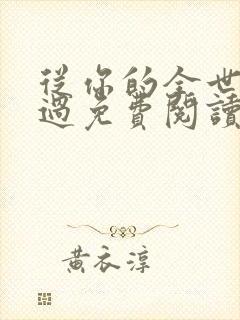 從你的全世
過免費閱讀
黃衣淳